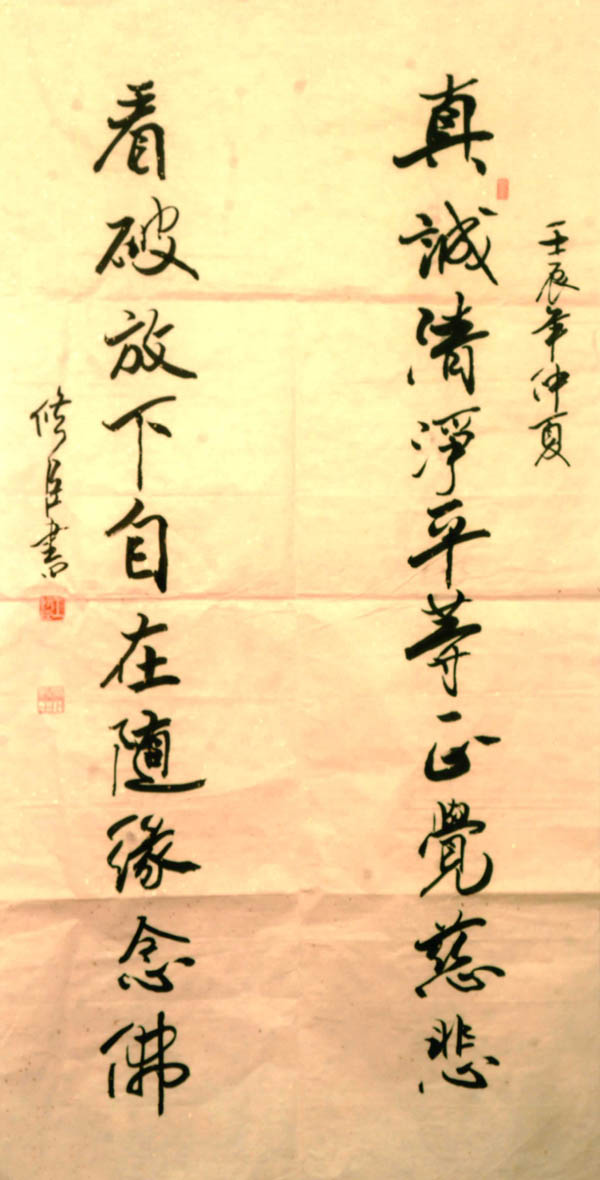 壬辰年仲夏
真誠清淨平等正覺慈悲
看破放下自在隨緣念佛
修臣書